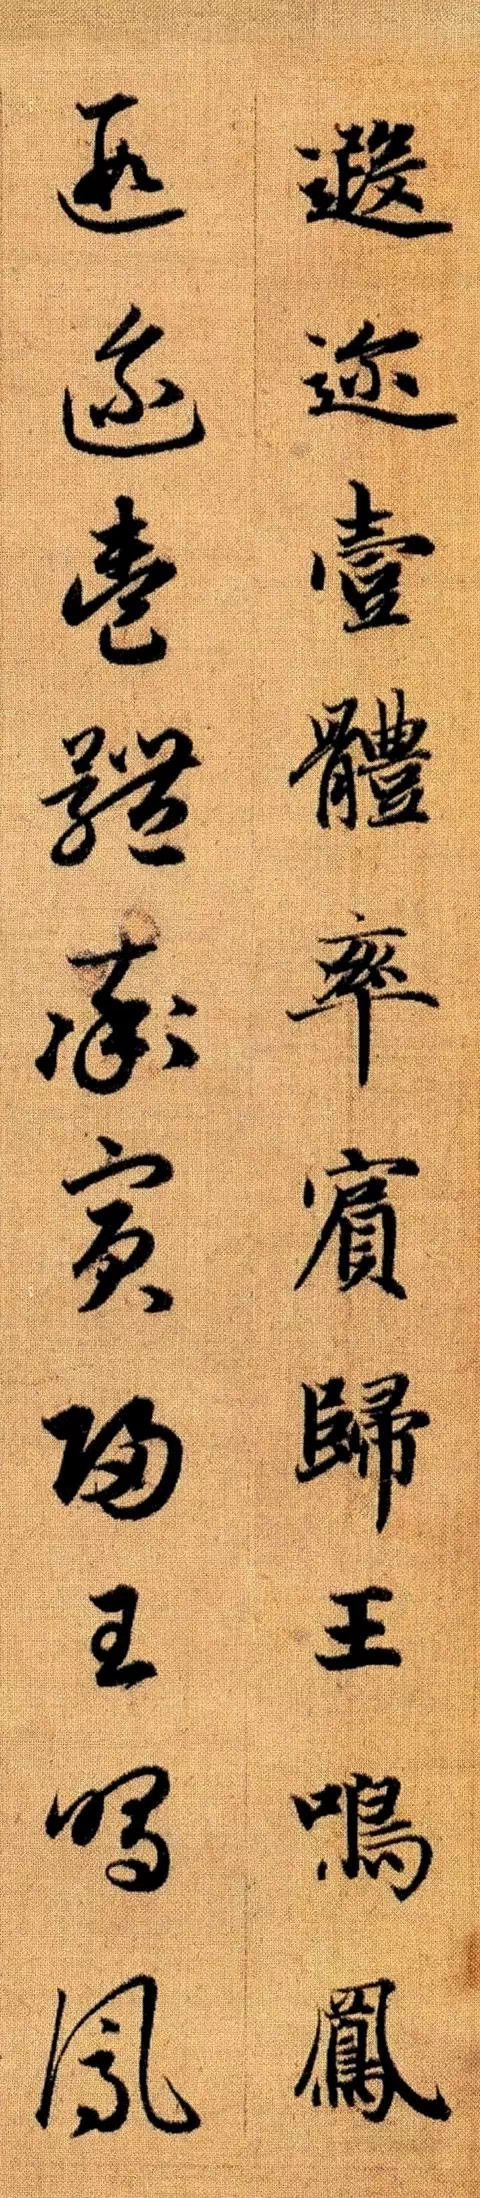 遐迩壹體率賓歸王鳴鳳
遐迩壹體率賓歸王鳴鳳